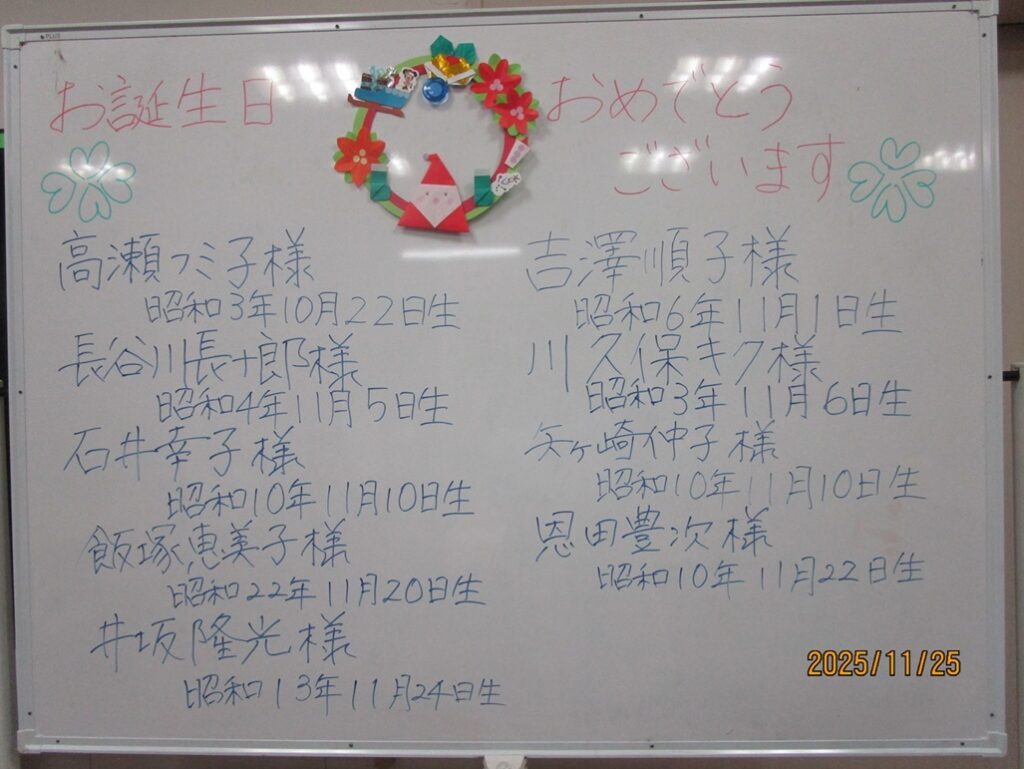 PLUS
お誕生日 おめでとう
ございます
高瀬フミ子様
昭和3年10月22日生
長谷川長十郎様
昭和4年11月5日生
石井幸子様
昭和10年11月10日生
飯塚恵美子様
昭和22年11月20日生
井坂隆光様
昭和13年11月24日生
吉澤順子様
昭和6年11月1日生
川久保キク様
昭和3年11月6日生
矢ヶ崎仲子様
昭和10年11月10日生
恩田豊次様
昭和10年11月22日生
2025/11/25